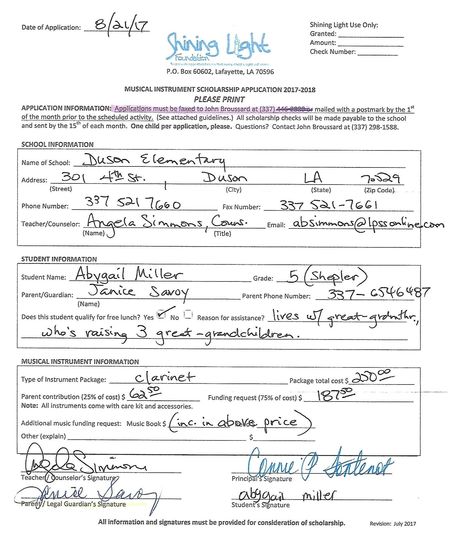 Date of Application: 8/21/17
Shining Light
Foundation
P.O. Box 60602, Lafayette, LA 70596
Shining Light Use Only:
Granted:
Amount:
Check Number:
MUSICAL INSTRUMENT SCHOLARSHIP APPLICATION 2017-2018
PLEASE PRINT
APPLICATION INFORMATION: Applications must be faxed to John Broussard at (337) or mailed with a postmark by the 1st
of the month prior to the scheduled activity. (See attached guidelines.) All scholarship checks will be made payable to the school
and sent by the 15th of each month. One child per application, please. Questions? Contact John Broussard at (337) 298-1588.
SCHOOL INFORMATION
Name of School: Duson Elementary
Address: 301 4th St. Duson LA 70529
(Street) (City) (State) (Zip Code)
Phone Number: 337 521 7660 Fax Number: 337 521-7661
Teacher/Counselor: Angela Simmons, Couns. Email: absimmons@lpssonline.com
(Name) (Title)
STUDENT INFORMATION
Student Name: Abygail Miller Grade: 5 (Shepler)
Parent/Guardian: Janice Savoy Parent Phone Number: 337-6546487
(Name)
Does this student qualify for free lunch? Yes No Reason for assistance? lives w/ great-grdmthr,
who's raising 3 great-grandchildren.
MUSICAL INSTRUMENT INFORMATION
Type of Instrument Package: clarinet Package total cost $ 250.00
Parent contribution (25% of cost) $ 62.50 Funding request (75% of cost): $ 187.50
Note: All instruments come with care kit and accessories.
Additional music funding request: Music Book $ (inc. in above price)
Other (explain) $
Angela Simmons
Teacher/Counselor's Signature
Principal's Signature
Janice Savoy
Parent/ Legal Guardian's Signature
abygail miller
Student's Signature
All information and signatures must be provided for consideration of scholarship. Revision: July 2017